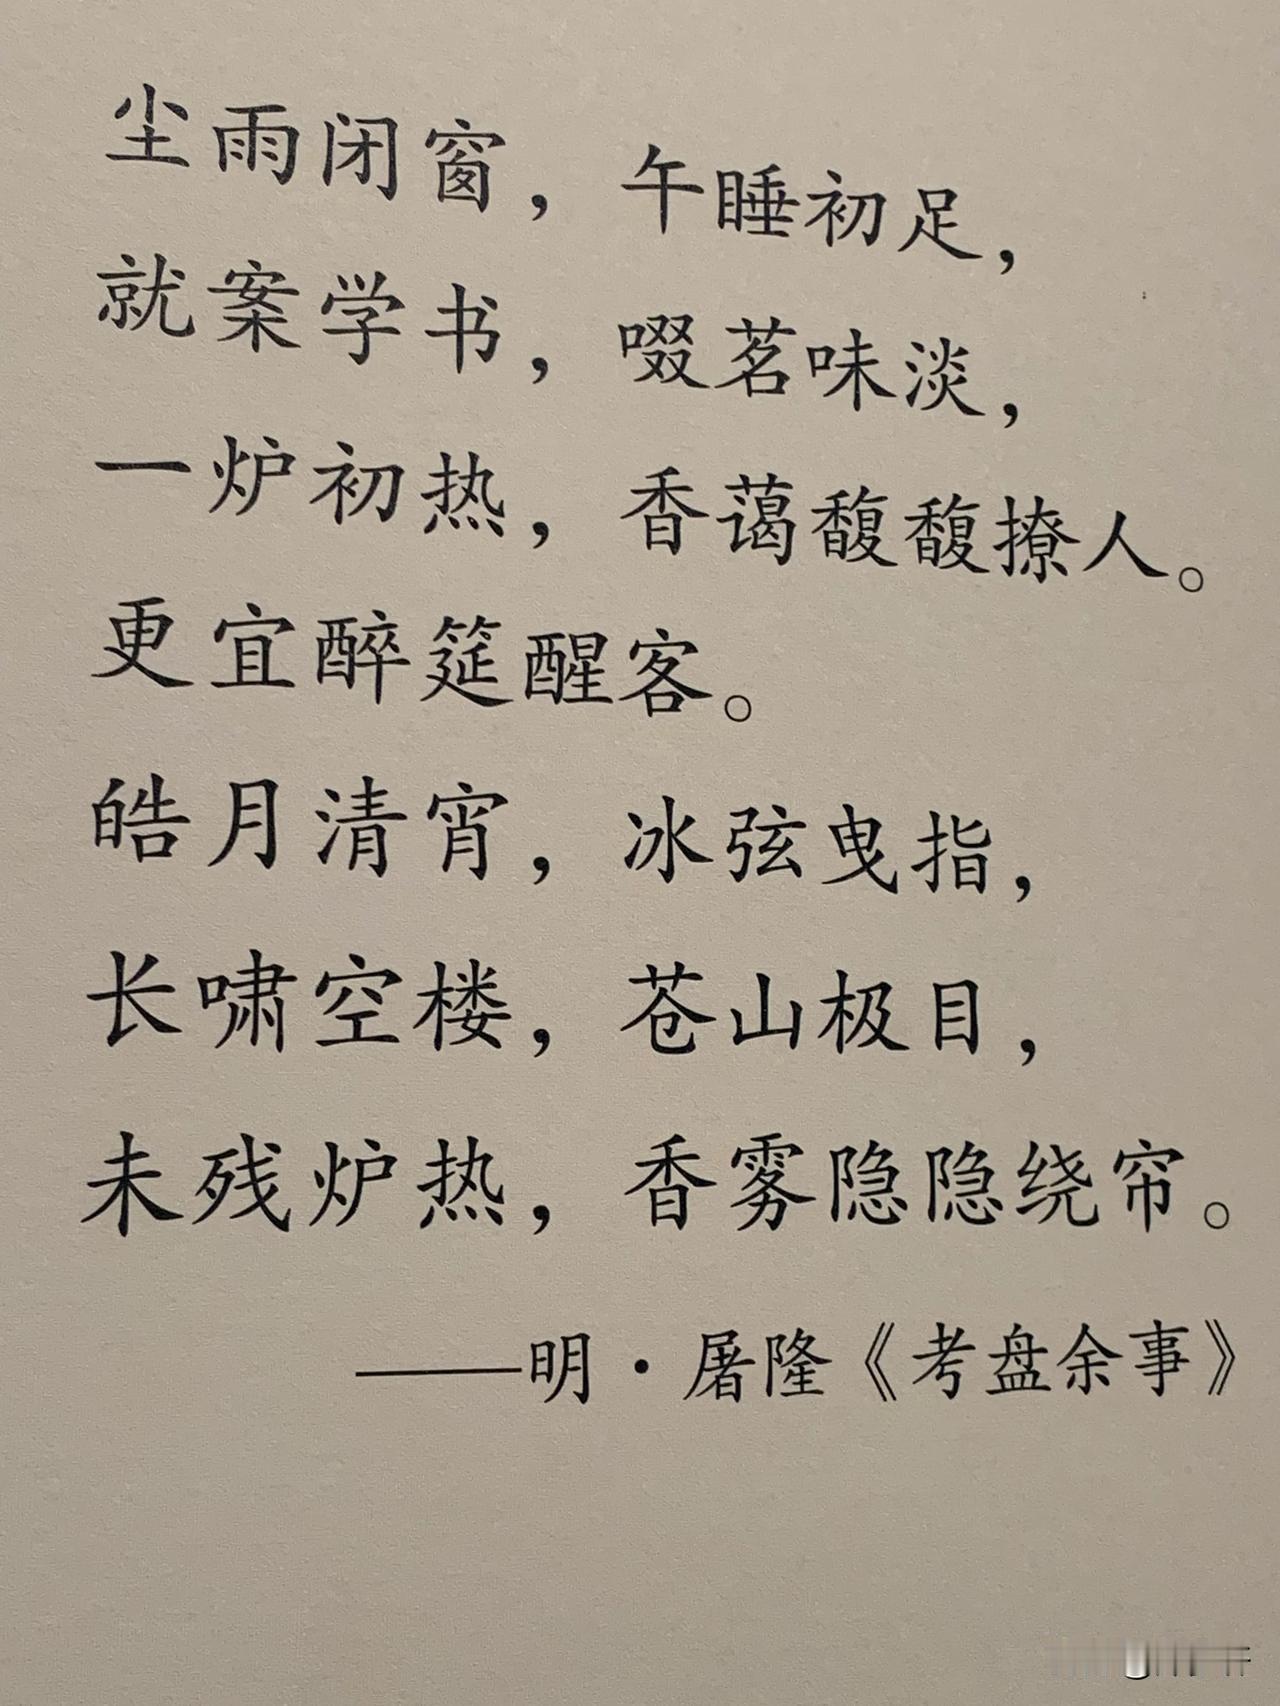 尘雨闭窗，午睡初足，
就案学书，啜茗味淡，
一炉初热，香蔼馥馥撩人。
更宜醉筵醒客。
皓月清宵，冰弦曳指，
长啸空楼，苍山极目，
未残炉热，香雾隐隐绕帘。
——明·屠隆《考盘余事》